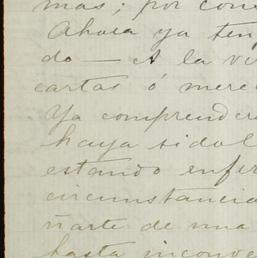 mas; por con
Ahora ya ten
do — A la vi
cartas ó mere
Ya comprendera
haya sido l
estando enfer
circunstancia
ñarte de una
hasta inconve